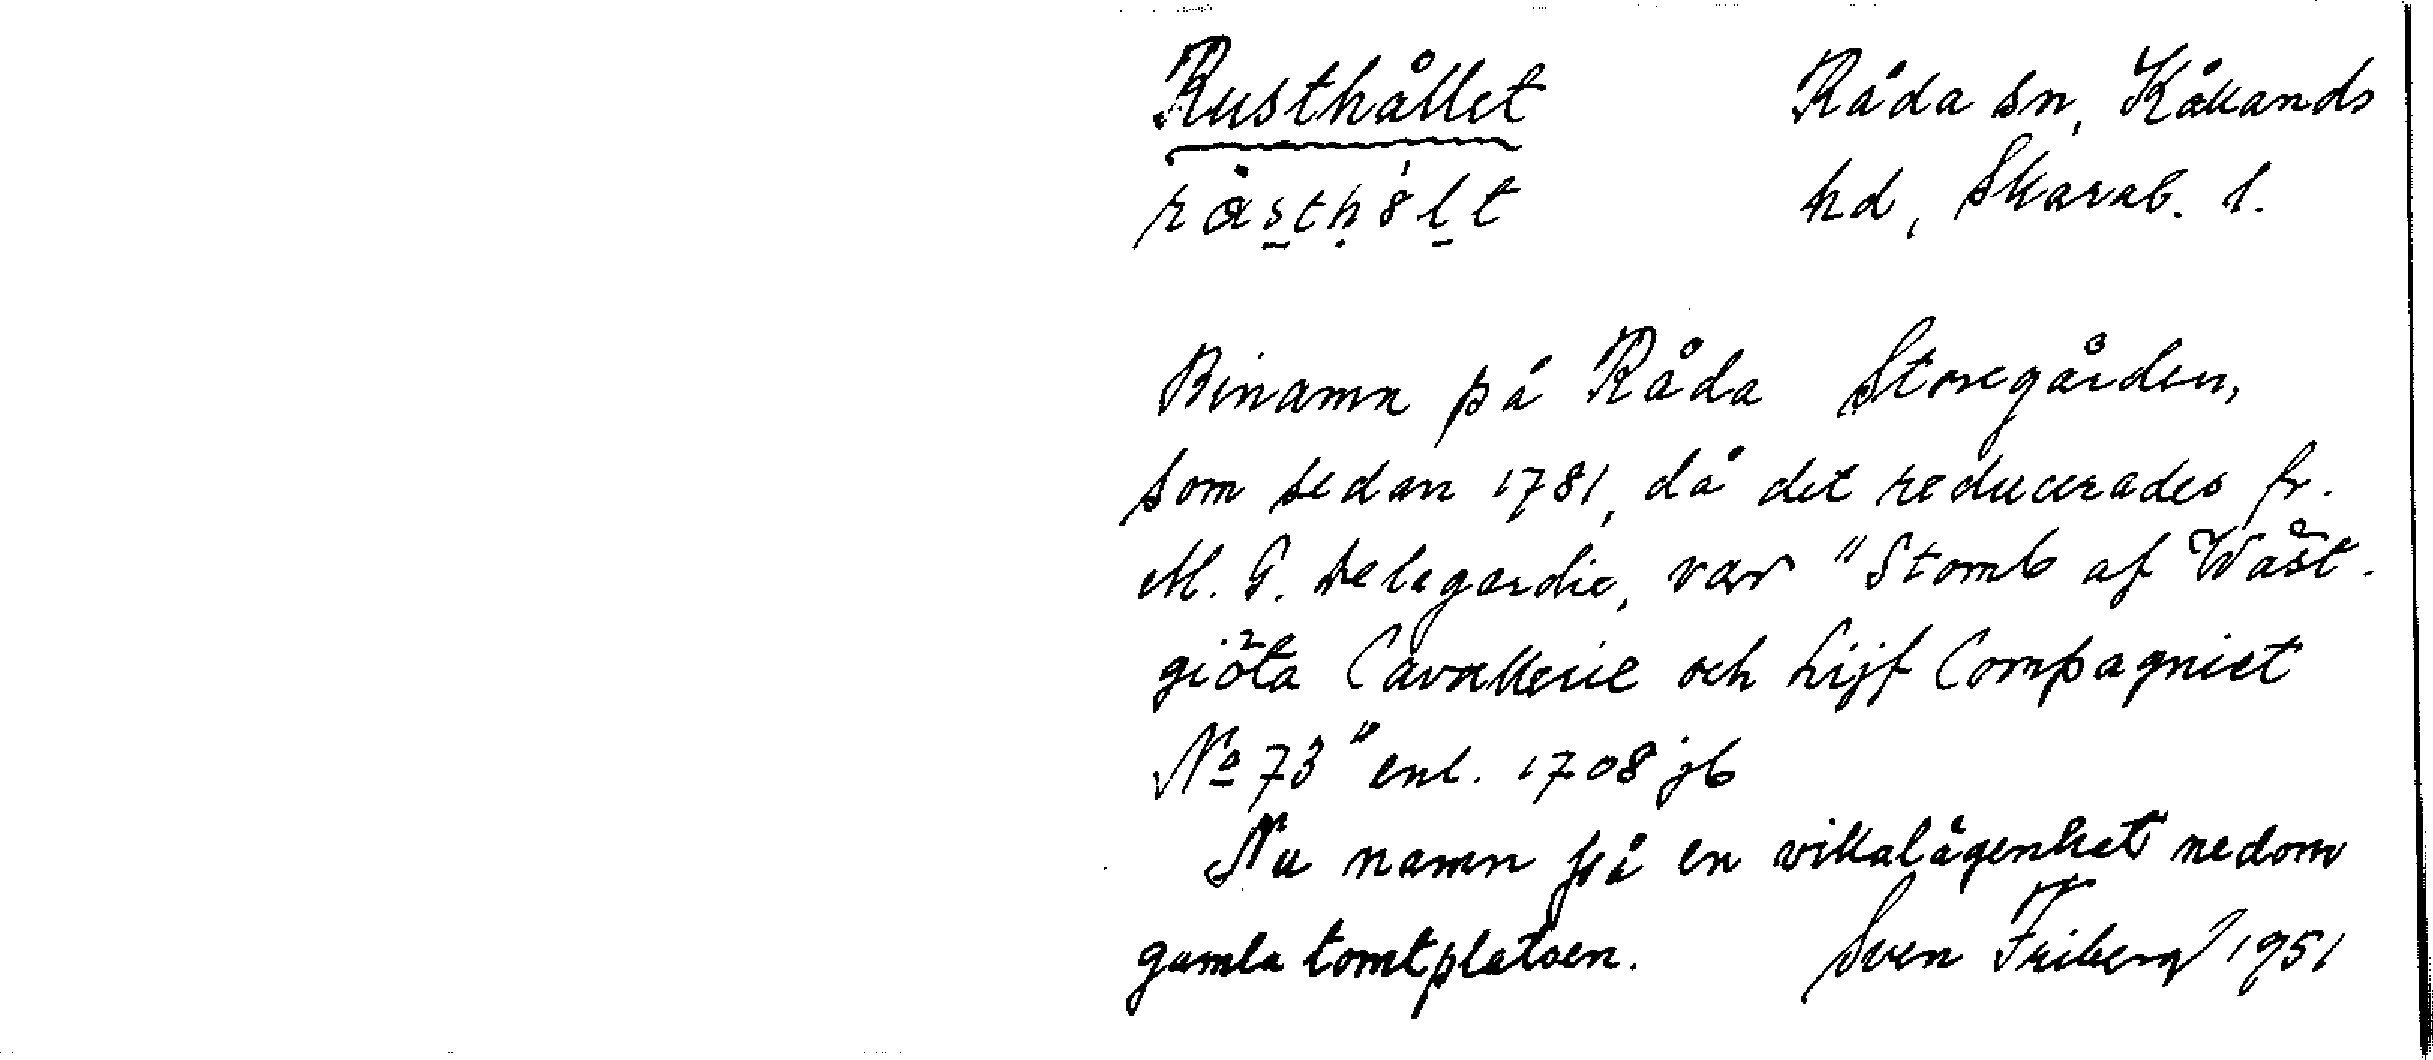 Rusthållet Råda sn, Kållands
råsth8lt hd, Skarab. l.
Binamn på Råda Storegården,
som sedan 1781, då det reducerades fr.
M. G. Delagardie, var "Stomb af Wäst-
giöta Cavallerie och Lijf Compagniet
No 73" enl. 1708 jb
Nu namn på en villalägenhet nedom
gamla tomtplatsen. Sven Friberg 1951